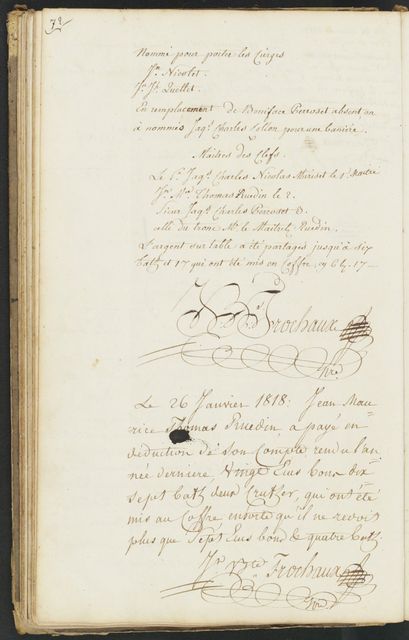 72
Nommé pour porter les Cierges
Jn. Nicolet.
Jn. Jh. Quellet.
En remplacement de Boniface Perroset absent on
à nommés Jaqs. Charles pour une baniere.
Maitres des Clefs.
Le Sr. Jaqs. Charles Nicolas Muriset le 1r. Maitre
Jn. Mce. Thomas Ruedin le 2.
Sieur Jaqs. Charles Perroset 3.
celle du tronc Mr. le Maitrebr. Ruedin.
L'argent sur table a été partagés jusqu'à six
batz et 17 qui ont été mis en Coffre, 17
Frochaux
Nre.
Le 26 Janvier 1818: Jean Mau
rice Thomas Ruedin à payé en
deduction de son Compte rendu l'an
née derniere, Vingt Ecus bons dix
sept batz deux Crutzer, qui ont été
mis au Coffre ensorte qu'il ne redoit
plus que Sept Ecus bons & quatre batz.
Frochaux
Nre.